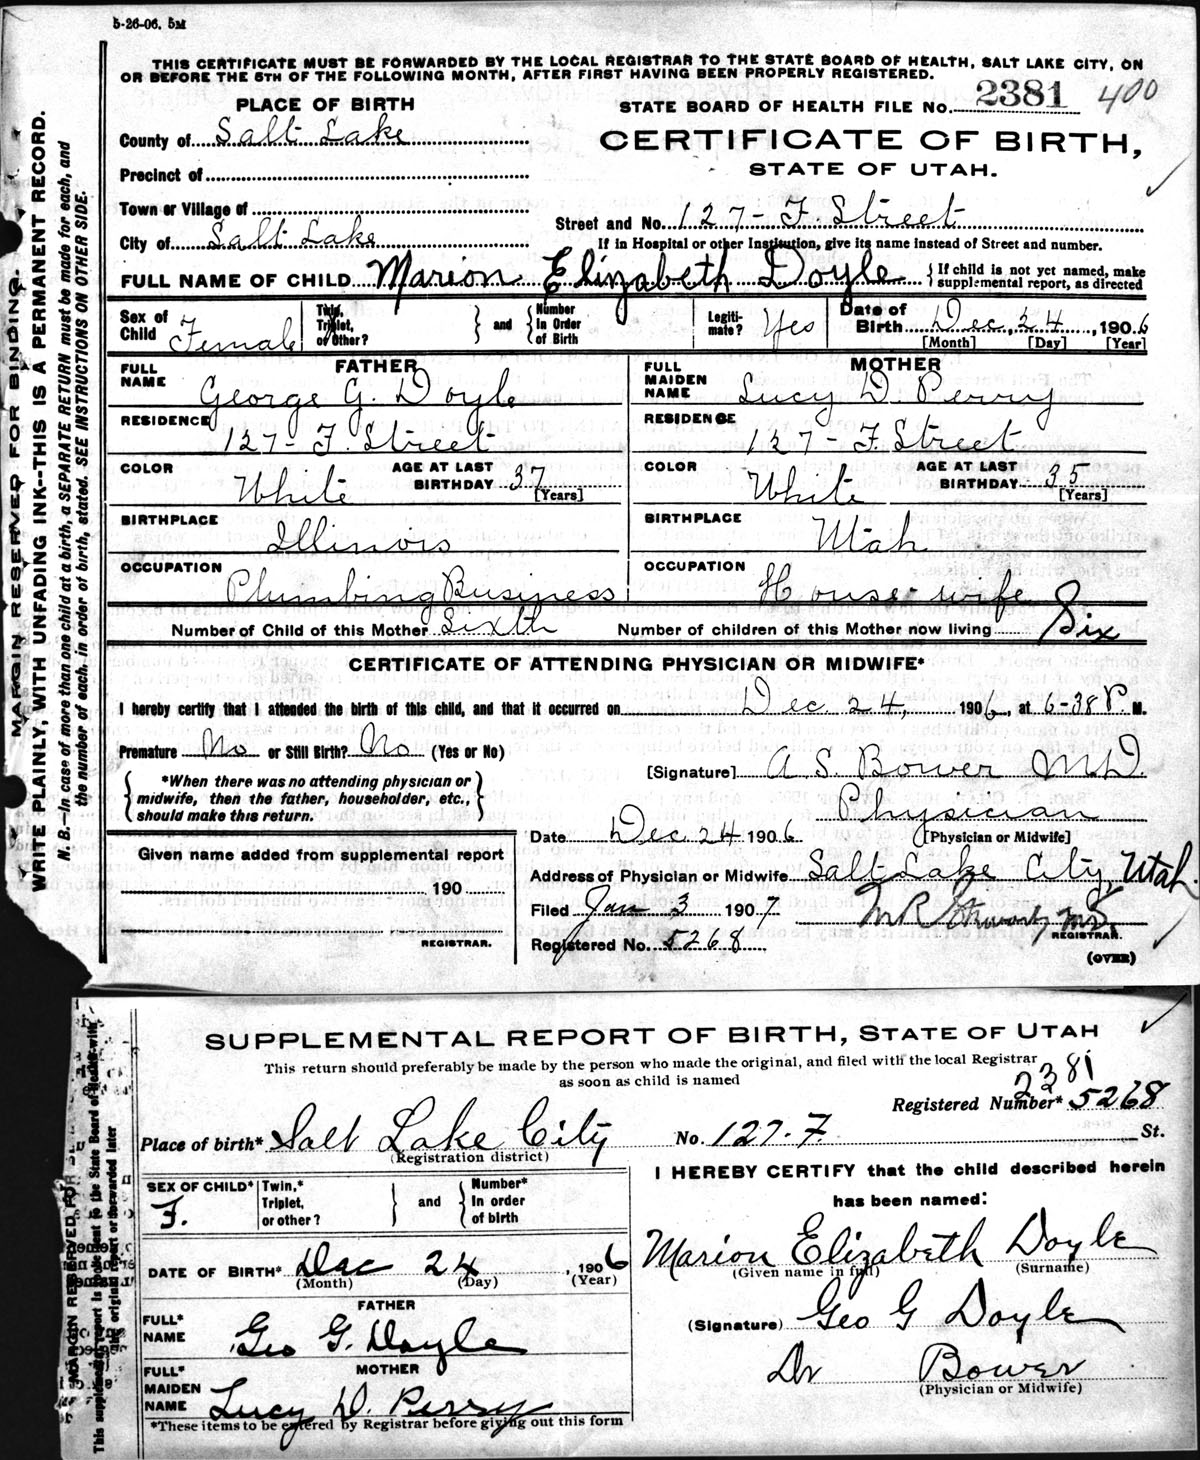 5-26-06. 5M
THIS CERTIFICATE MUST BE FORWARDED BY THE LOCAL REGISTRAR TO THE STATE BOARD OF HEALTH, SALT LAKE CITY, ON
OR BEFORE THE 5TH OF THE FOLLOWING MONTH, AFTER FIRST HAVING BEEN PROPERLY REGISTERED.
PLACE OF BIRTH
STATE BOARD OF HEALTH FILE No. 2381 400
County of Salt Lake
CERTIFICATE OF BIRTH,
STATE OF UTAH.
Precinct of
Town or Village of
Street and No. 127 - F. Street
City of Salt Lake
If in Hospital or other Institution, give its name instead of Street and number.
FULL NAME OF CHILD Marion Elizabeth Doyle { If child is not yet named, make
supplemental report, as directed
Sex of Child Female
Twin, Triplet, or Other? } and { Number In Order of Birth
Legitimate? Yes
Date of Birth Dec. 24, 1906
[Month] [Day] [Year]
FATHER
MOTHER
FULL NAME George G. Doyle
FULL MAIDEN NAME Lucy D. Perry
RESIDENCE 127 - F. Street
RESIDENCE 127 - F. Street
COLOR White AGE AT LAST BIRTHDAY 37 [Years]
COLOR White AGE AT LAST BIRTHDAY 35 [Years]
BIRTHPLACE Illinois
BIRTHPLACE Utah
OCCUPATION Plumbing Business
OCCUPATION House-wife
Number of Child of this Mother Sixth Number of children of this Mother now living Six
CERTIFICATE OF ATTENDING PHYSICIAN OR MIDWIFE*
I hereby certify that I attended the birth of this child, and that it occurred on Dec. 24, 1906, at 6-38 P. M.
Premature No or Still Birth? No (Yes or No)
*When there was no attending physician or
midwife, then the father, householder, etc.,
should make this return.
[Signature] A. S. Bower M.D.
Physician
Date Dec. 24 1906 [Physician or Midwife]
Address of Physician or Midwife Salt Lake City, Utah.
Given name added from supplemental report
190
REGISTRAR.
Filed Jan 3 1907
REGISTRAR.
Registered No. 5268
(OVER)
MARGIN RESERVED FOR BINDING.
WRITE PLAINLY, WITH UNFADING INK--THIS IS A PERMANENT RECORD.
N. B.—In case of more than one child at a birth, a SEPARATE RETURN must be made for each, and
the number of each, in order of birth, stated. SEE INSTRUCTIONS ON OTHER SIDE.
SUPPLEMENTAL REPORT OF BIRTH, STATE OF UTAH
This return should preferably be made by the person who made the original, and filed with the local Registrar
as soon as child is named
2381
Registered Number* 5268
Place of birth* Salt Lake City No. 127. F. St.
(Registration district)
SEX OF CHILD* F.
Twin,* Triplet, or other? } and { Number* In order of birth
DATE OF BIRTH* Dec 24, 1906
(Month) (Day) (Year)
FATHER
FULL* NAME Geo G. Doyle
MOTHER
FULL* MAIDEN NAME Lucy D. Perry
*These items to be entered by Registrar before giving out this form
I HEREBY CERTIFY that the child described herein
has been named:
Marion Elizabeth Doyle
(Given name in full) (Surname)
(Signature) Geo G Doyle
Dr Bower
(Physician or Midwife)